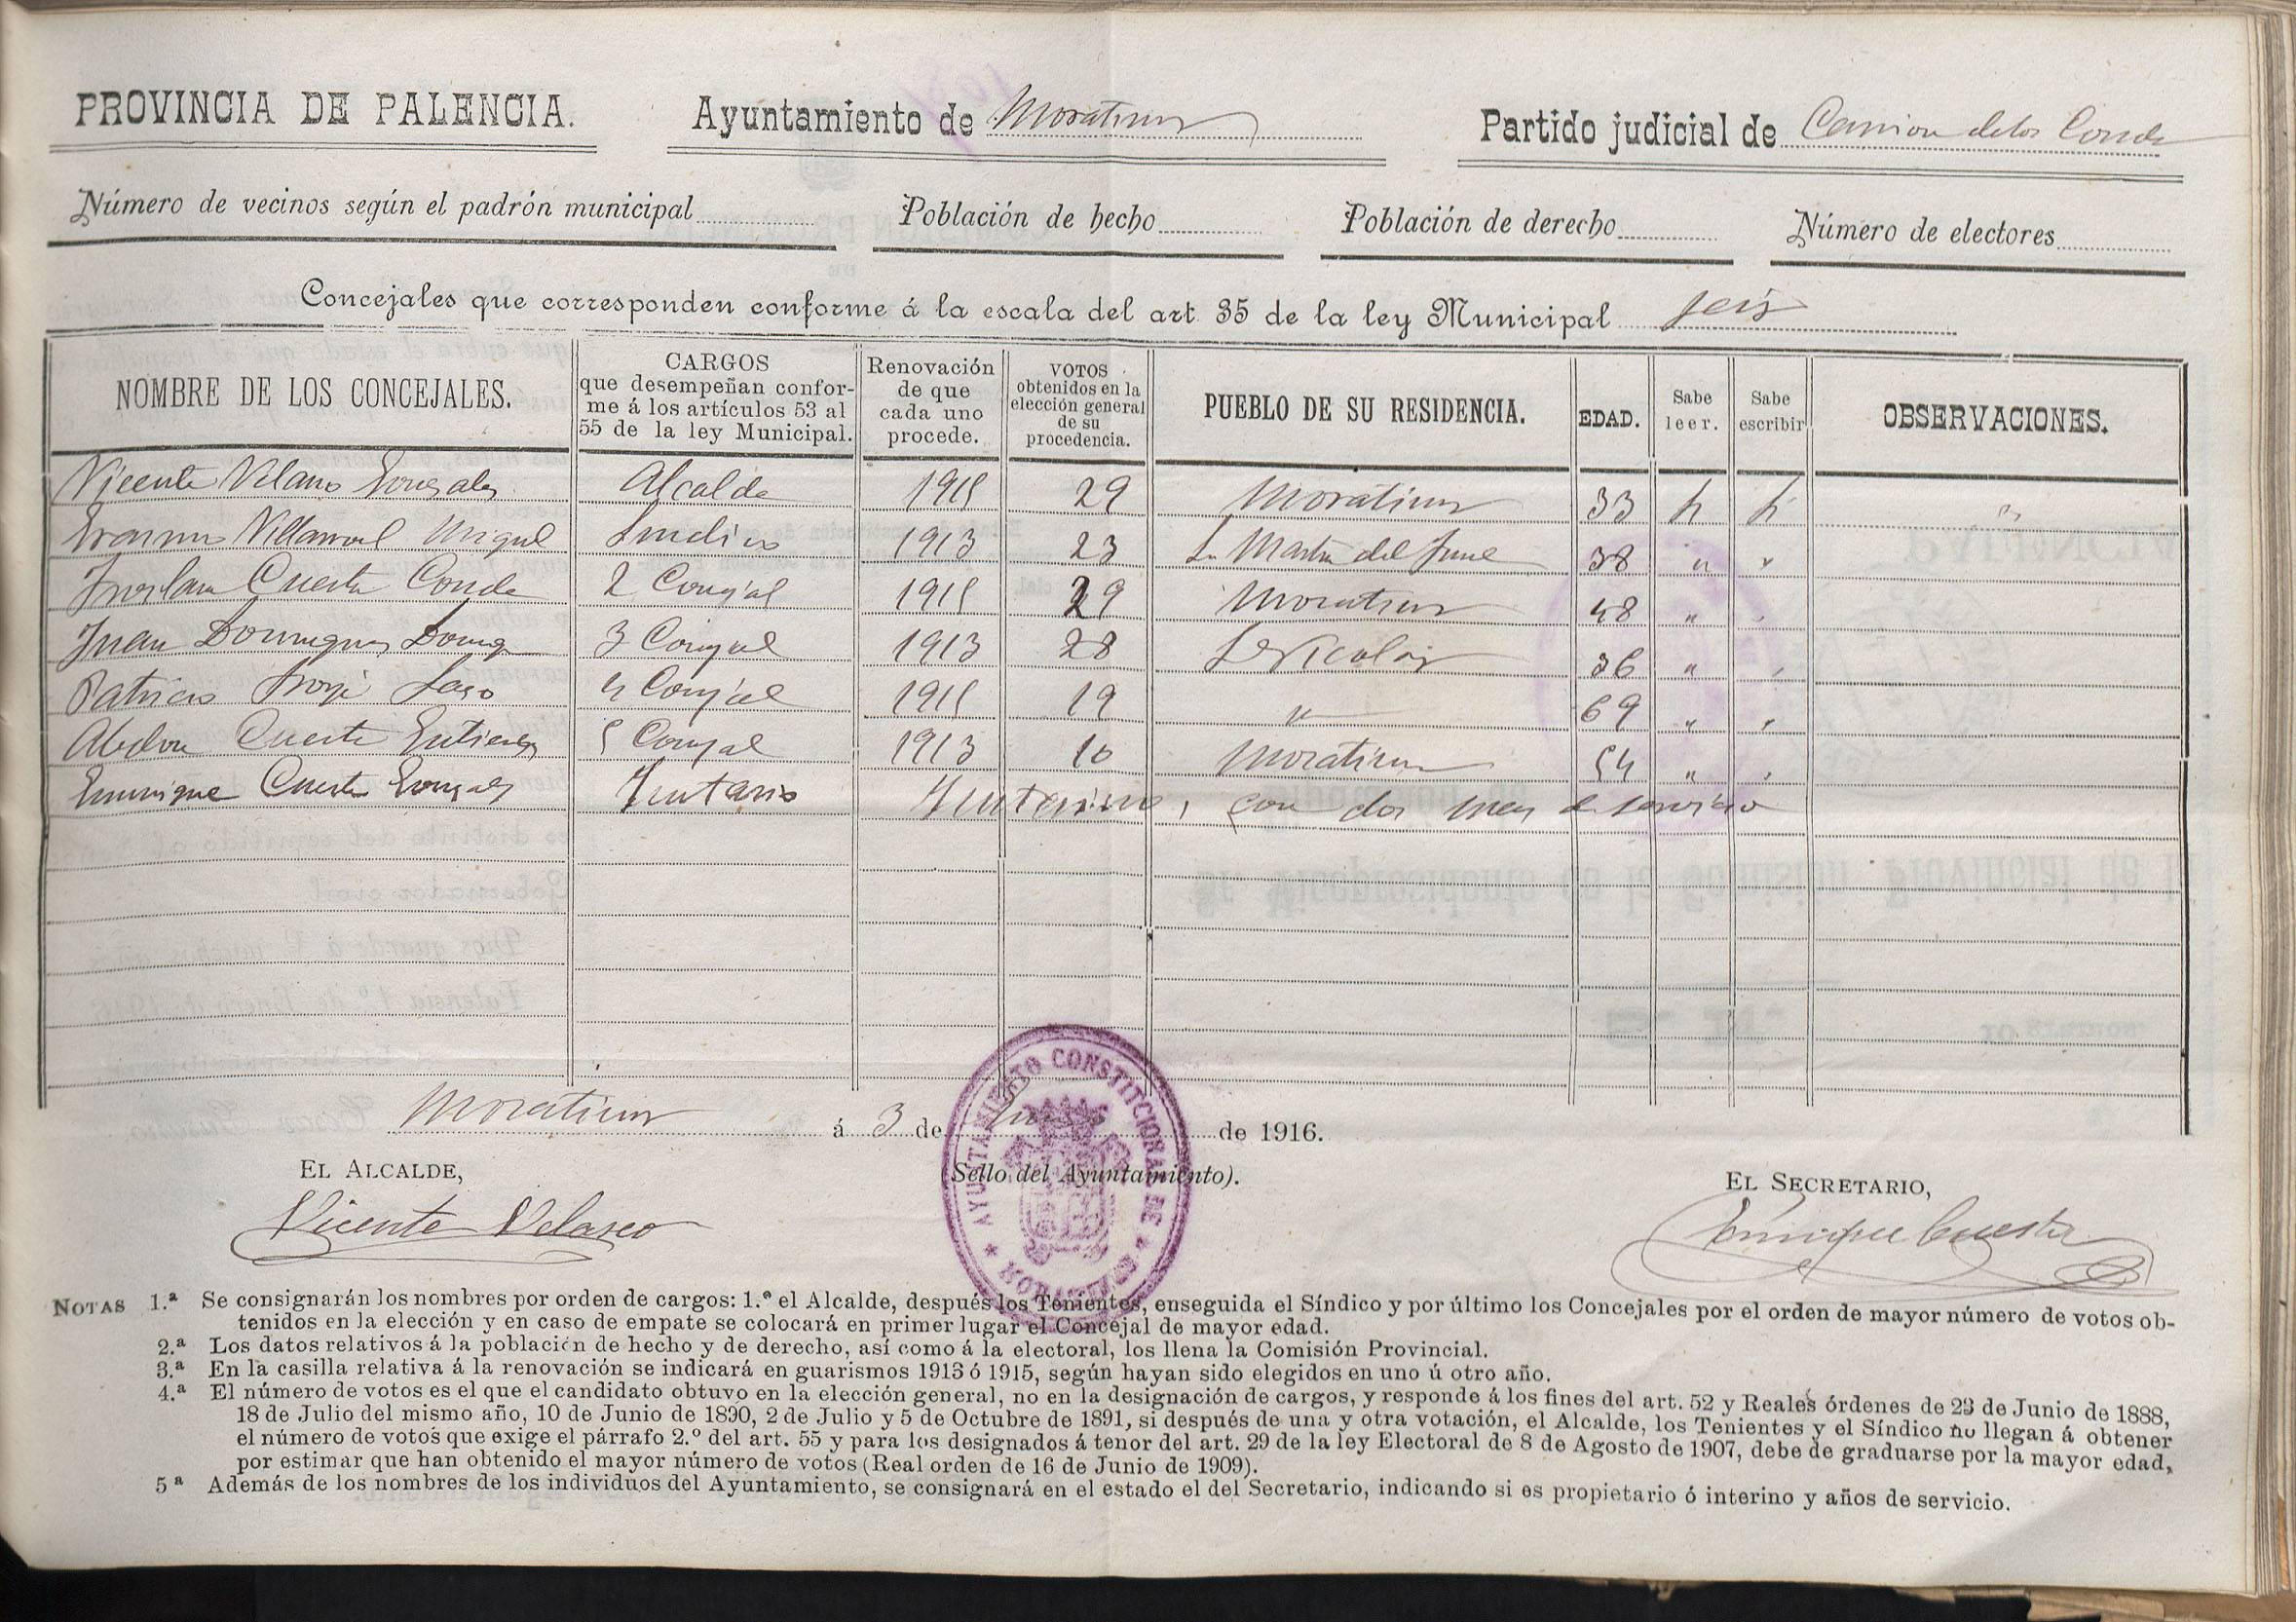 PROVINCIA DE PALENCIA. Ayuntamiento de Moratinos Partido judicial de Carrion de los Condes
Número de vecinos según el padrón municipal Población de hecho Población de derecho Número de electores
Concejales que corresponden conforme á la escala del art 35 de la ley Municipal seis
NOMBRE DE LOS CONCEJALES.
CARGOS
que desempeñan confor-
me á los artículos 53 al
55 de la ley Municipal.
Renovación
de que
cada uno
procede.
VOTOS
obtenidos en la
elección general
de su
procedencia.
PUEBLO DE SU RESIDENCIA.
EDAD.
Sabe
leer.
Sabe
escribir
OBSERVACIONES.
Vicente Velasco Gonzalez Alcalde 1915 29 Moratinos 33 si si "
Villarroel Miguel Sindico 1913 23 Sn Martin del 38 " "
Froilan Cuesta Conde 2 Concejal 1915 29 Moratinos 48 " "
Juan Dominguez Doming 3 Concejal 1913 28 Sn Nicolás 36 " "
Patricio Laso 4 Concejal 1915 19 " 69 " "
Abdon Cuesta Gutierrez 5 Concejal 1913 10 Moratinos 54 " "
Enrique Cuesta Gonzalez con dos de servicio
Moratinos á 3 de de 1916.
EL ALCALDE, (Sello del Ayuntamiento). EL SECRETARIO,
Vicente Velasco Enrique Cuesta
AYUNTAMIENTO CONSTITUCIONAL DE
NOTAS 1.ª Se consignarán los nombres por orden de cargos: 1.º el Alcalde, después los Tenientes, enseguida el Síndico y por último los Concejales por el orden de mayor número de votos ob-
tenidos en la elección y en caso de empate se colocará en primer lugar el Concejal de mayor edad.
2.ª Los datos relativos á la población de hecho y de derecho, así como á la electoral, los llena la Comisión Provincial.
3.ª En la casilla relativa á la renovación se indicará en guarismos 1913 ó 1915, según hayan sido elegidos en uno ú otro año.
4.ª El número de votos es el que el candidato obtuvo en la elección general, no en la designación de cargos, y responde á los fines del art. 52 y Reales órdenes de 23 de Junio de 1888,
18 de Julio del mismo año, 10 de Junio de 1890, 2 de Julio y 5 de Octubre de 1891, si después de una y otra votación, el Alcalde, los Tenientes y el Síndico no llegan á obtener
el número de votos que exige el párrafo 2.º del art. 55 y para los designados á tenor del art. 29 de la ley Electoral de 8 de Agosto de 1907, debe de graduarse por la mayor edad,
por estimar que han obtenido el mayor número de votos (Real orden de 16 de Junio de 1909).
5ª Además de los nombres de los individuos del Ayuntamiento, se consignará en el estado el del Secretario, indicando si es propietario ó interino y años de servicio.